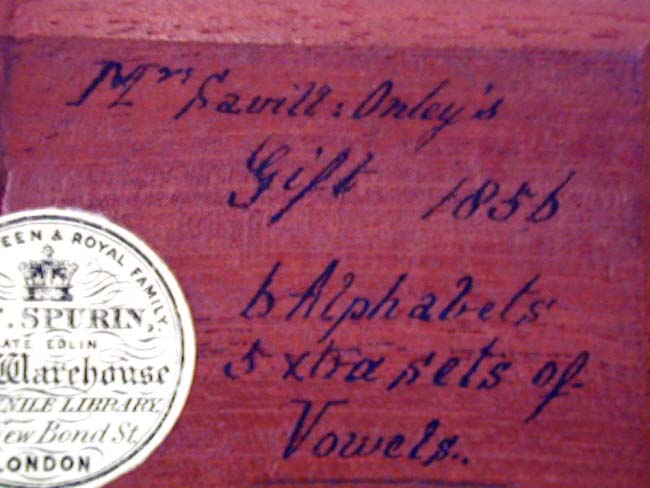 Mrs Savill: Onley's
Gift 1856
6 Alphabets
5 xtra sets of
Vowels.
EEN & ROYAL FAMILY.
. SPURIN,
ATE EDLIN
Warehouse
NILE LIBRARY.
New Bond St,
LONDON